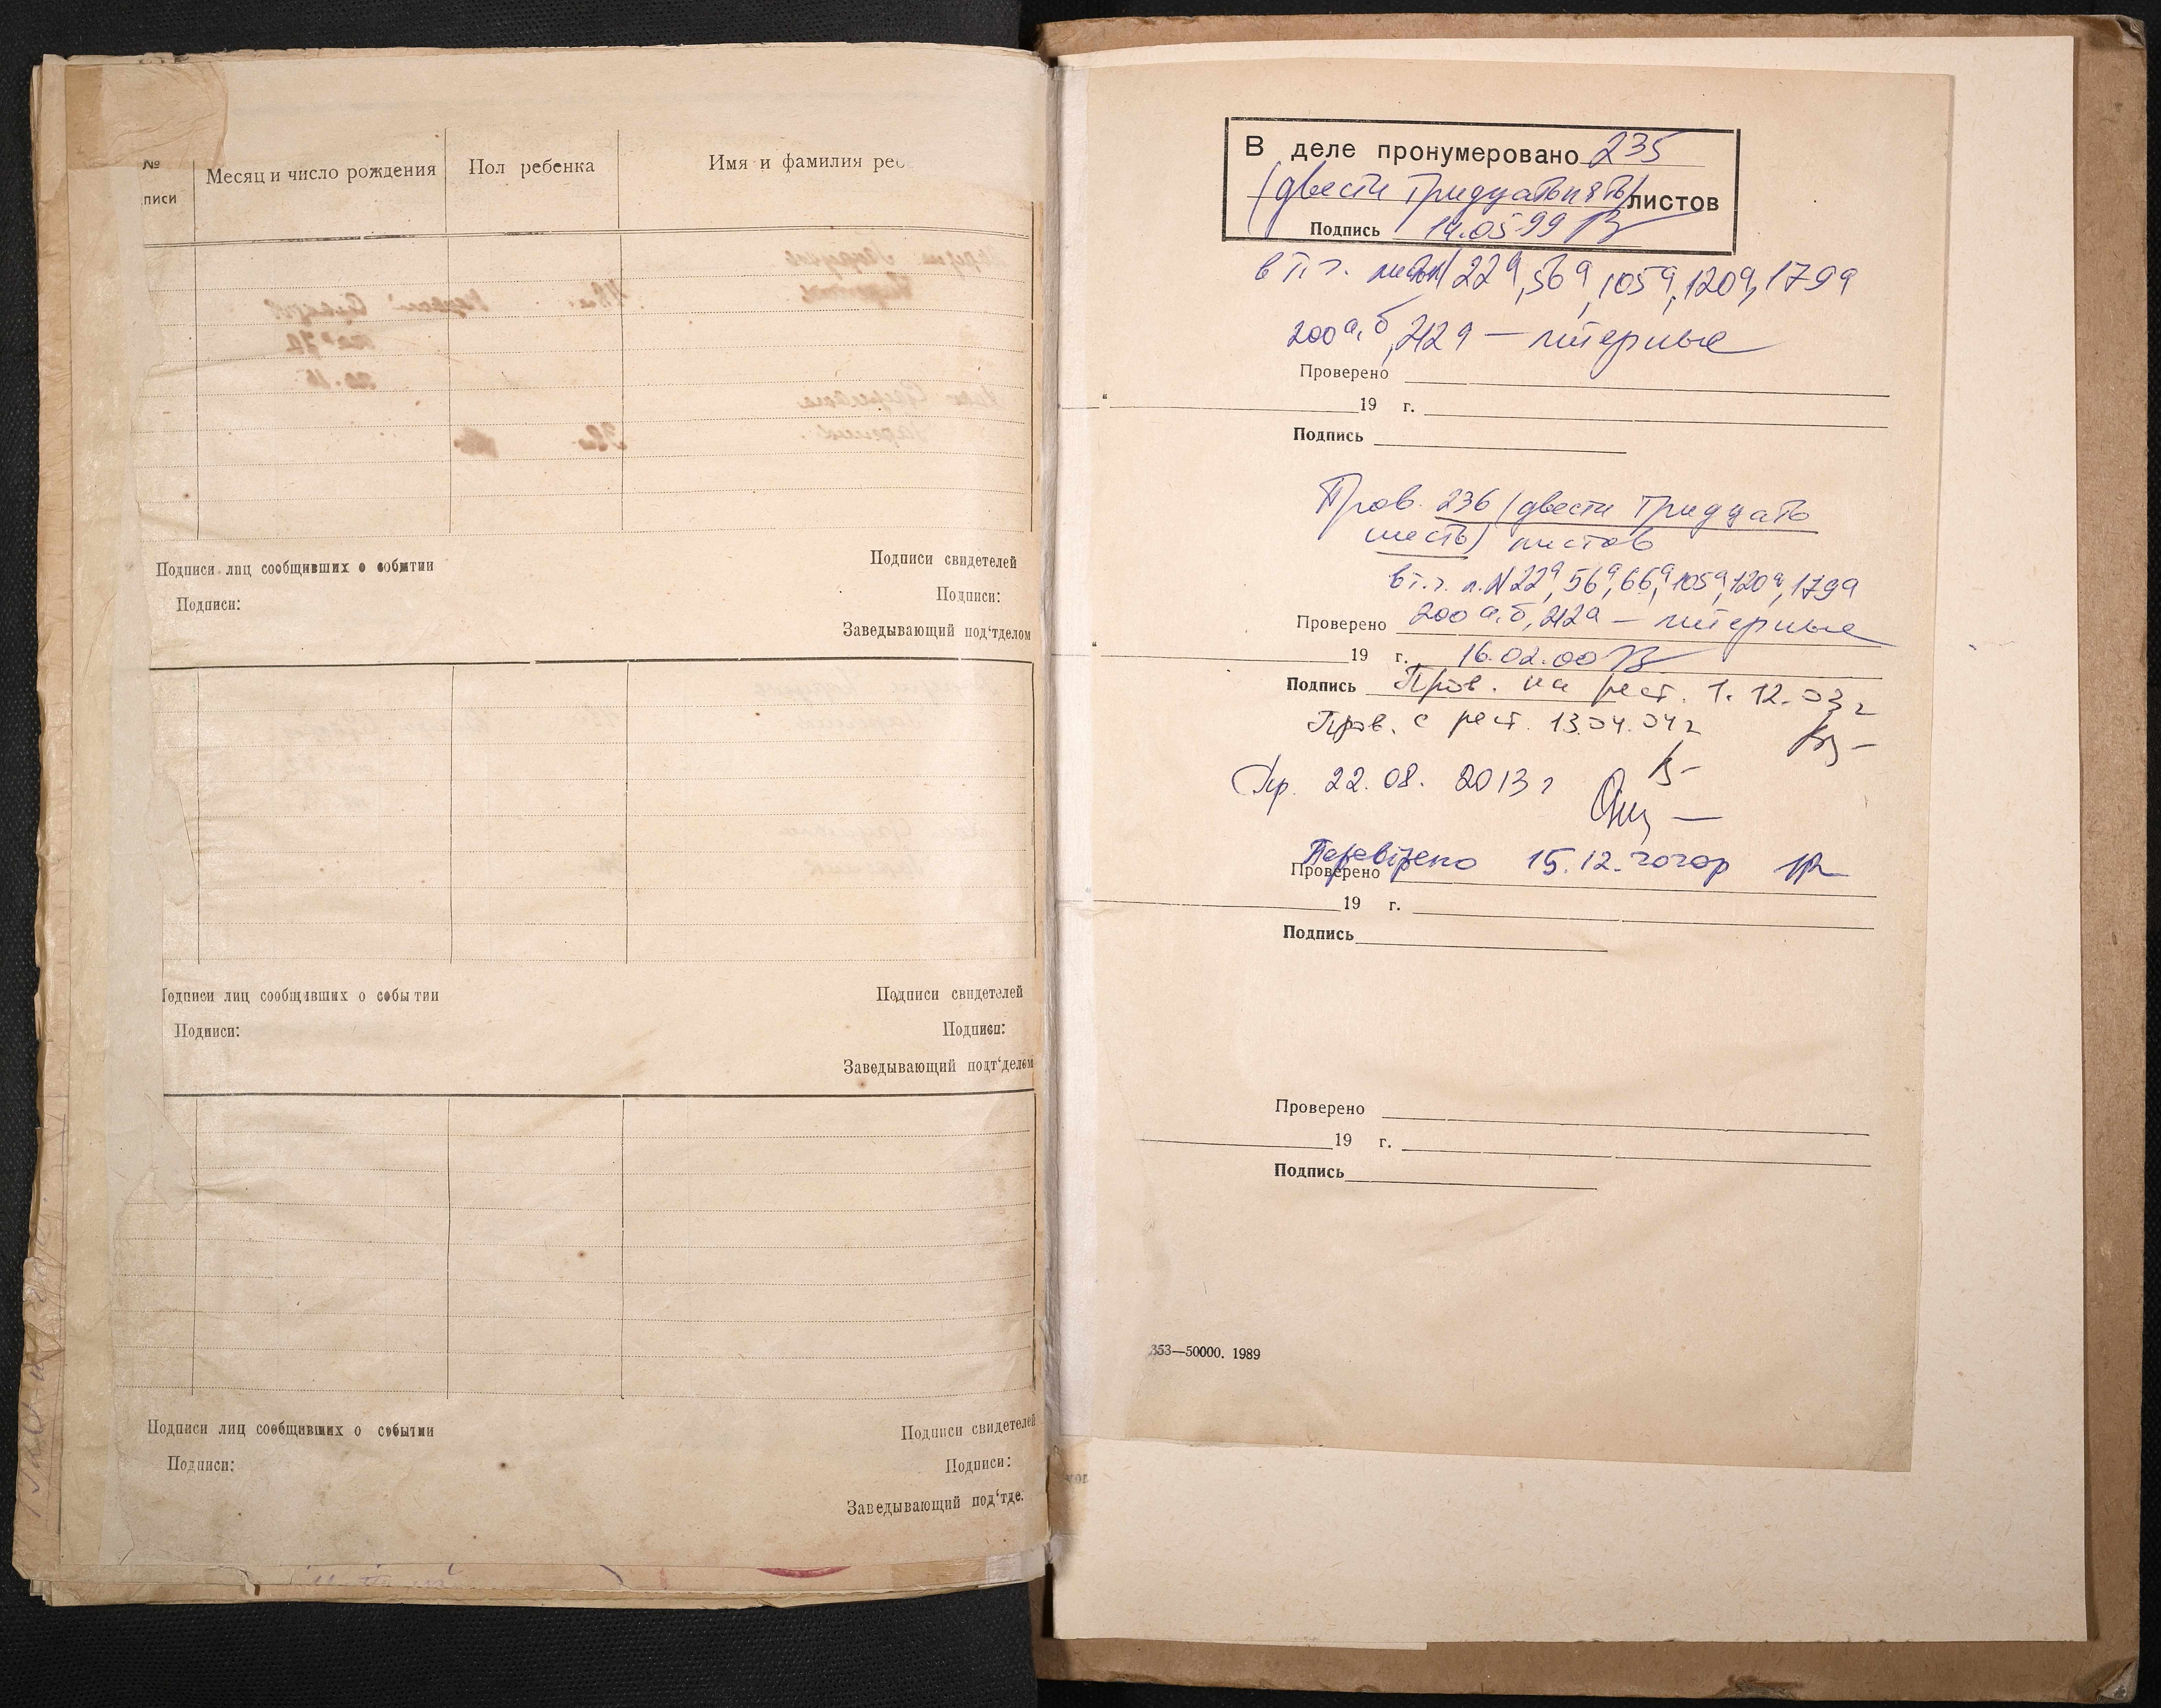 №
писи
Месяц и число рождения
Пол ребенка
Имя и фамилия реб
Подписи лиц сообщивших о событии
Подписи свидетелей
Подписи:
Подписи:
Заведывающий под‘тделом
Подписи лиц сообщивших о событии
Подписи свидетелей
Подписи:
Подписи:
Заведывающий подт‘делом
Подписи лиц сообщивших о событии
Подписи свидетелей
Подписи:
Подписи:
Заведывающий под‘тде.
В деле пронумеровано 235
(двести тридцать пять) листов
Подпись 14.05.99
в т.ч. листы 22а, 56а, 105а, 120а, 179а
200а,б, 212а — литерные
Проверено
19 г.
Подпись
Пров. 236 (двести тридцать
шесть) листов
в т.ч. л.N 22а, 56а, 66а, 105а, 120а, 179а
Проверено 200а,б, 212а — литерные
19 г. 16.02.00
Подпись Пров. на рест. 1.12.03г
Пров. с рест. 13.04.04г
Пр. 22.08.2013г
Перевірено 15.12.2020р
Проверено
19 г.
Подпись
Проверено
19 г.
Подпись
353—50000. 1989